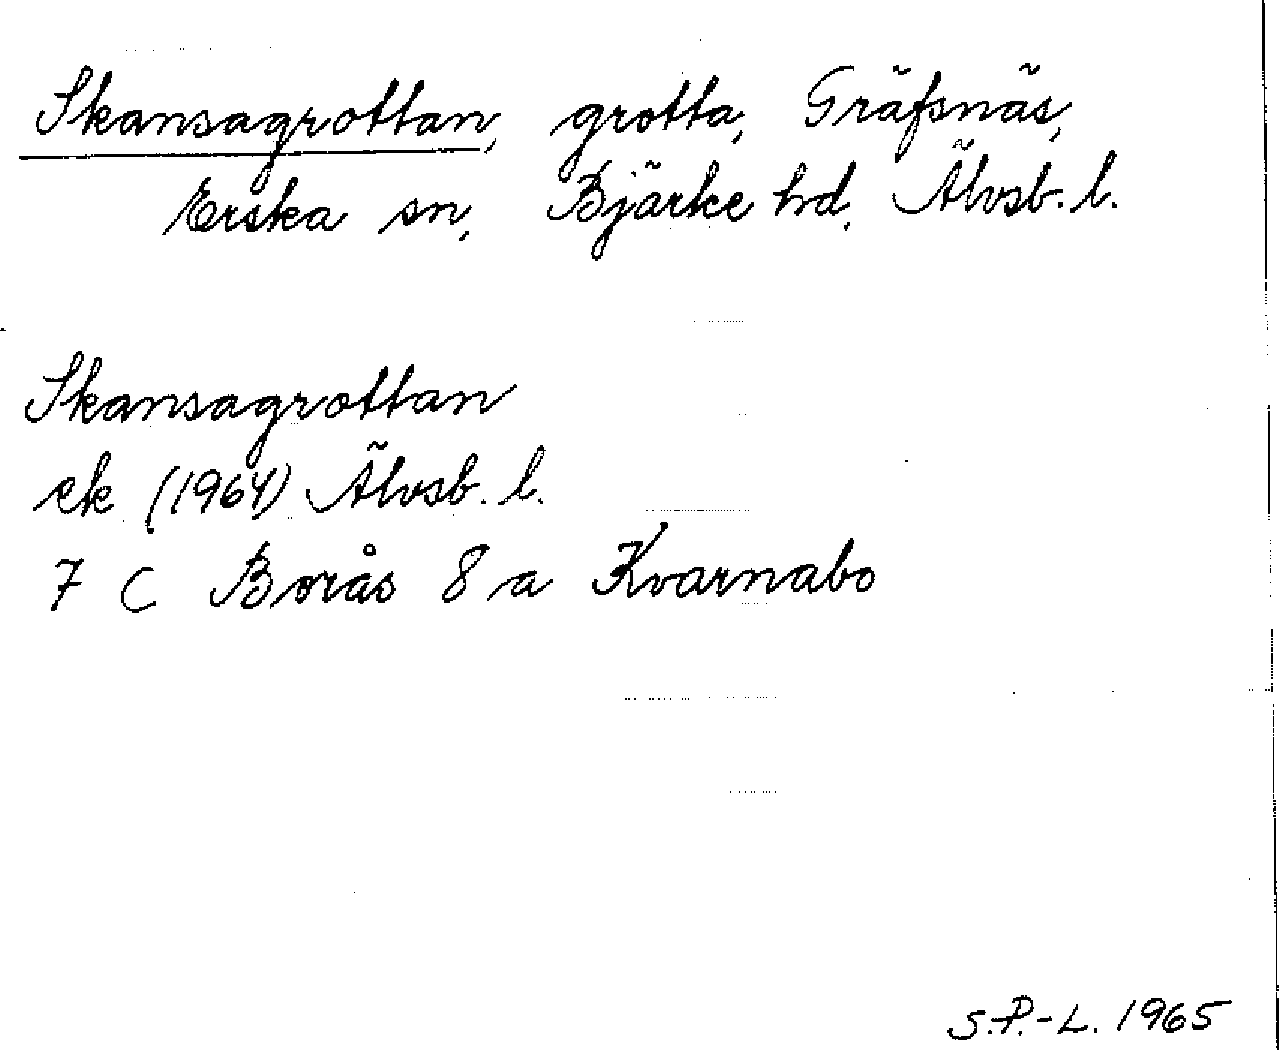 Skansagrottan, grotta, Gräfsnäs,
Erska sn, Bjärke hd, Älvsb. l.
Skansagrottan
ek (1964) Älvsb. l.
7 C Borås 8 a Kvarnabo
S.P.-L. 1965